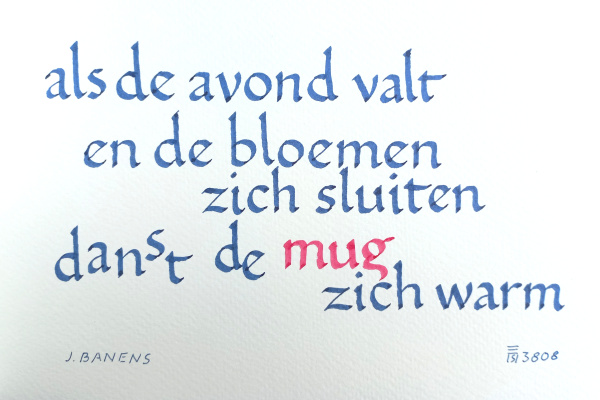 als de avond valt
en de bloemen
zich sluiten
danst de mug
zich warm
J. BANENS
3808